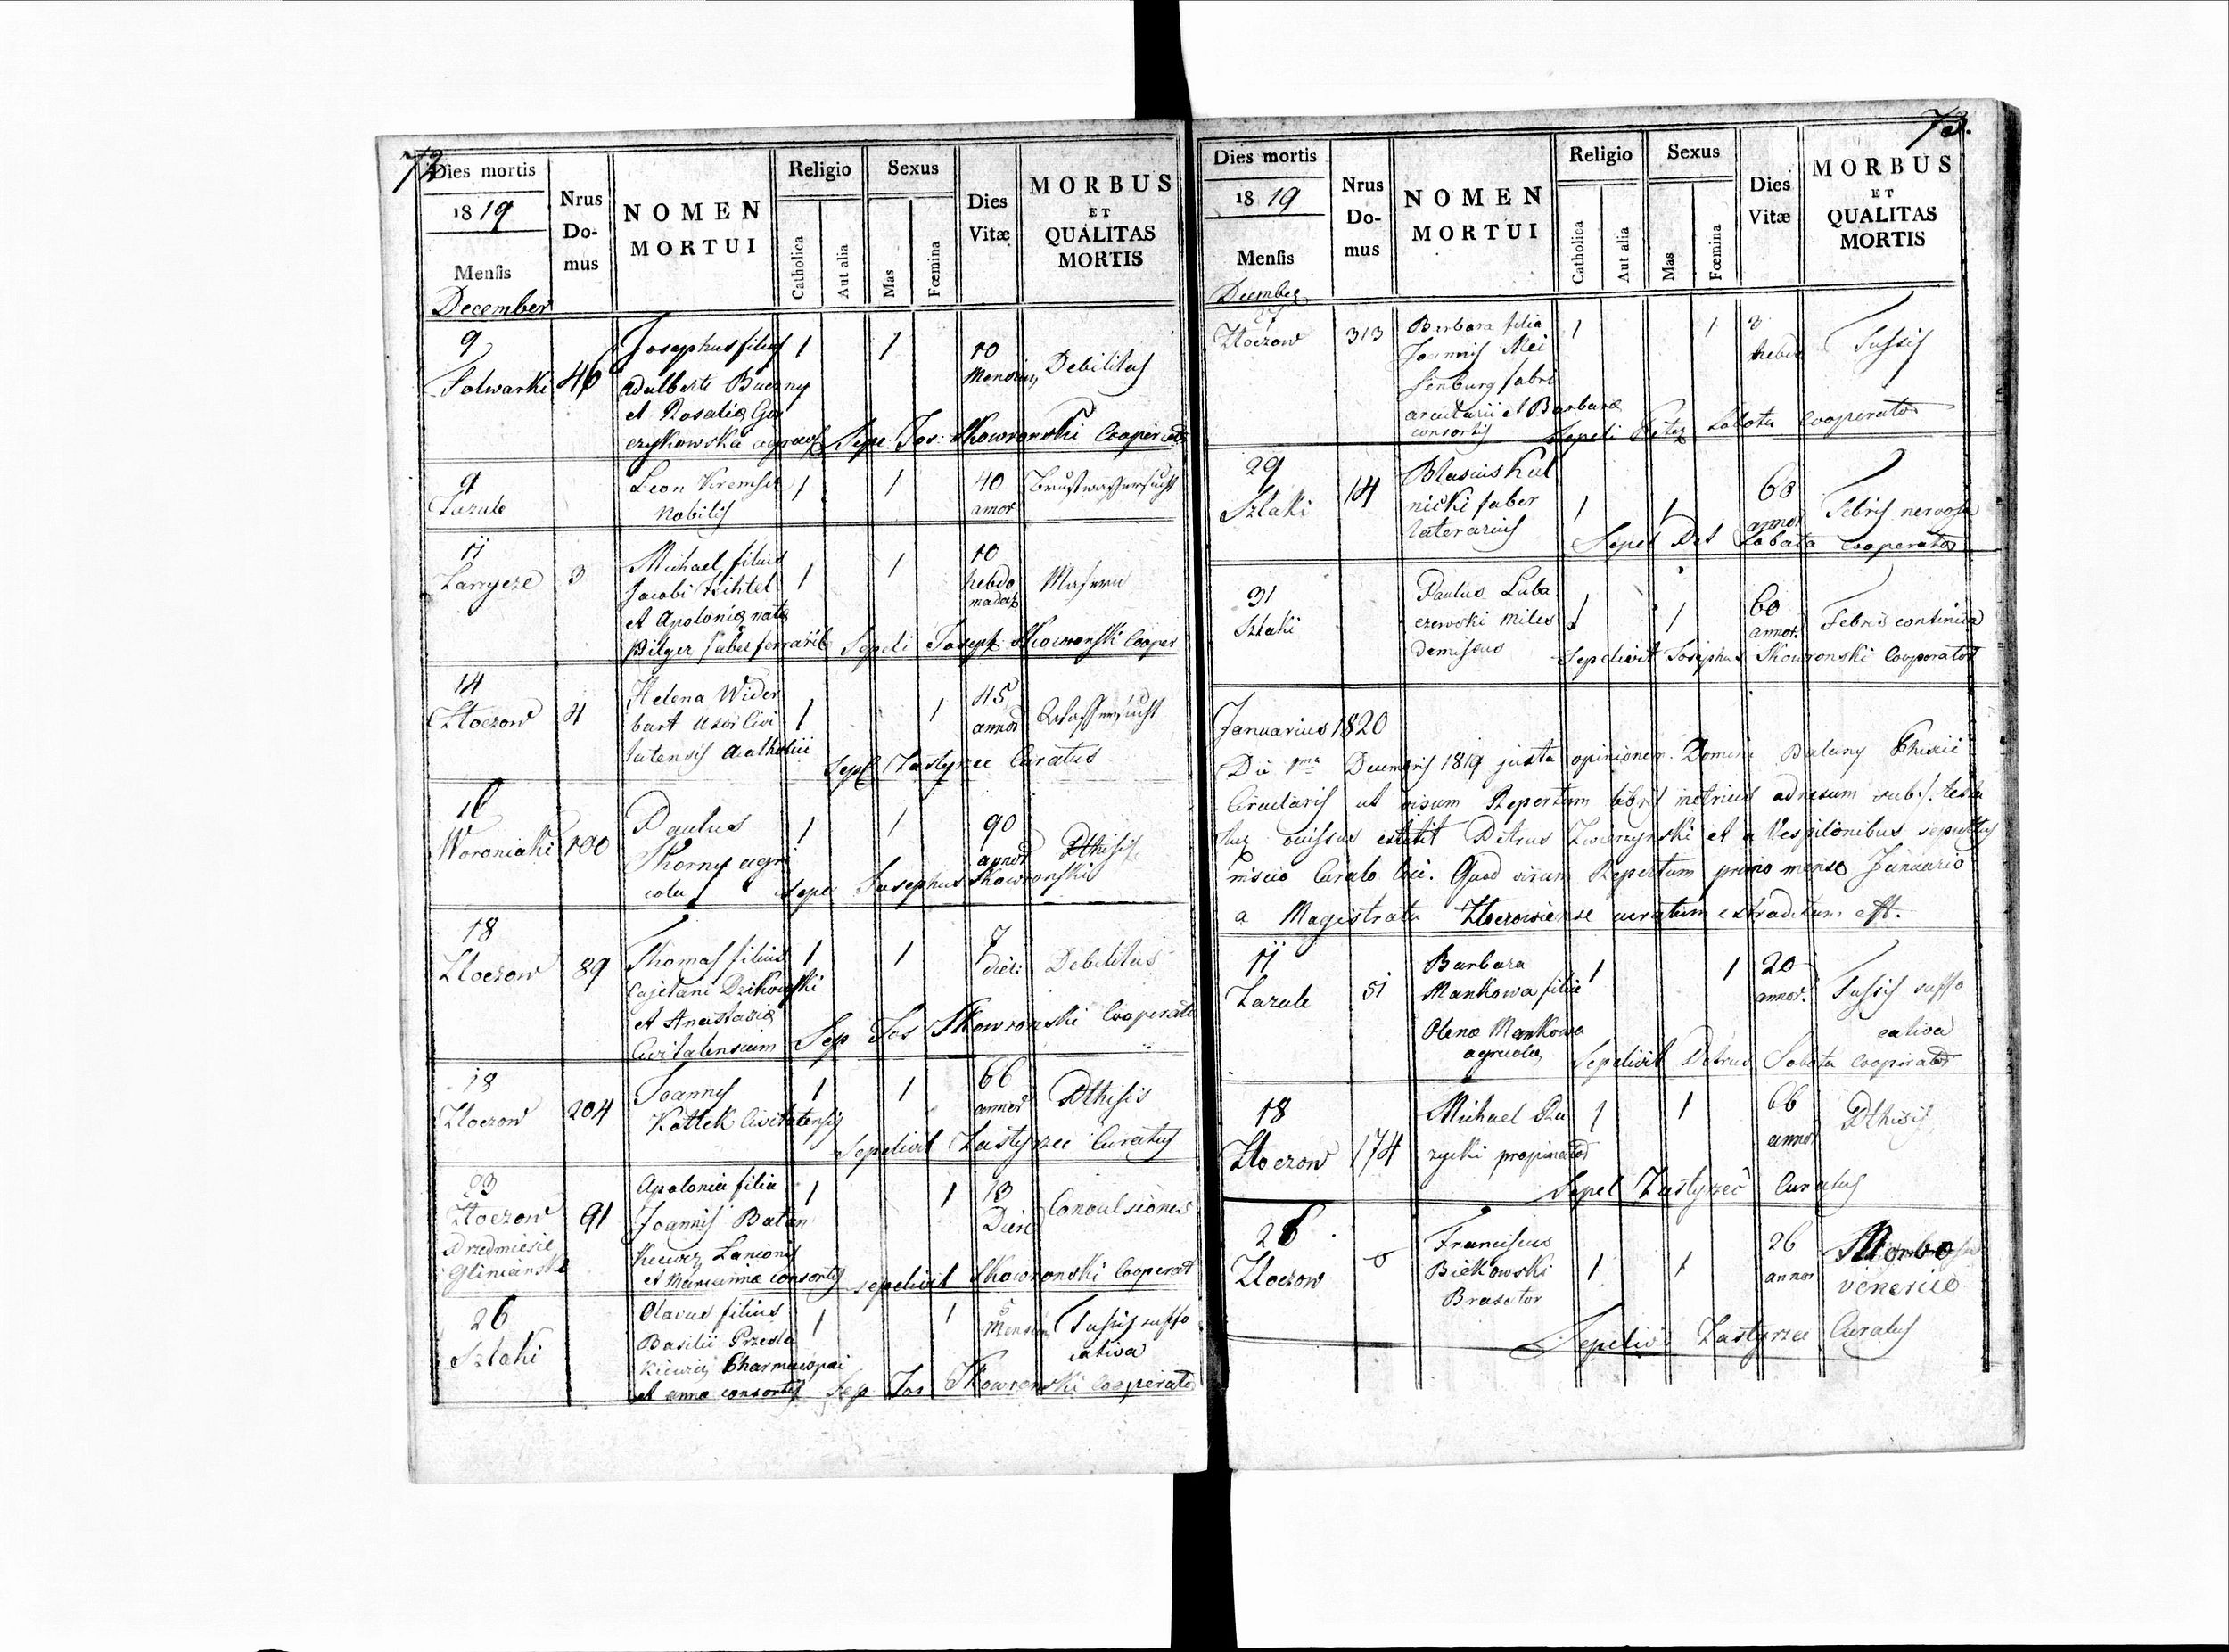 72
Dies mortis
1819
Mensis
December
Nrus
Do-
mus
NOMEN
MORTUI
Religio
Catholica
Aut alia
Sexus
Mas
Fœmina
Dies
Vitæ
MORBUS
ET
QUALITAS
MORTIS
9
Folwarki
46
Josephus filius
Adalberti
et Rosaliæ
1
1
10
Mensium
Debilitas
Sepe. Jos: Skowronski Cooperator
9
Zazule
Leon
Nobilis
1
1
40
annor
Brustwassersucht
11
3
Michael filius
Jacobi
et Apoloniæ nata
Pilger faber ferrarii
1
1
10
hebdo
madar
Masern
Sepeli Joseph Skowronski Cooper
14
Złoczow
4
Helena Wider
bart Uxor Civi
tatensis
1
1
45
annor
Wassersucht
Sepel Zastyrzec Curatus
16
Woroniaki
100
Paulus
Skorny agri
cola
1
1
90
annor
Pthisis
Sepel Josephus Skowronski
18
Złoczow
89
Thomas filius
Cajetani Dzikowski
et Anastasiæ
Civitatensium
1
1
7
dier:
Debilitas
Sep Jos Skowronski Cooperator
18
Złoczow
204
Joannes
Kottek Civitatensis
1
1
66
annor
Pthisis
Sepelivit Zastyrzec Curatus
23
Złoczow
Przedmiesie
Glinianskie
91
Apolonia filia
Joannis Batan
kiewicz Lanionis
et Mariannæ consortis
1
1
13
Dier
Convulsiones
sepelivit Skowronski Cooperat
26
Szlaki
filius
Basilii Przesla
kiewicz Pharmacopai
et Anna consortis
1
1
Mensium
Tussis suffo
cativa
Sep. Jos Skowronski Cooperator
73.
Dies mortis
1819
Mensis
December
Nrus
Do-
mus
NOMEN
MORTUI
Religio
Catholica
Aut alia
Sexus
Mas
Fœmina
Dies
Vitæ
MORBUS
ET
QUALITAS
MORTIS
27
Złoczow
313
Barbara filia
Joannis Mei
senburg fabri
arcularii et Barbaræ
consortis
1
1
3
hebd
Tussis
Sepeli Petrus Sobota Cooperator
29
Szlaki
14
Blasius Kul
nicki faber
laterarius
1
1
60
annor
Febris nervosa
Sepel Pet Sobota Cooperator
31
Szlaki
Paulus Luba
czewski miles
demissus
1
1
60
annor.
Febris continua
Sepelivit Josephus Skowronski Cooperator
Januarius 1820
Die 1ma Decembris 1819 juxta opinionem Domini Balany
Circularis ut visum Repertum libris metricis adnexum sub ./.
extitit Petrus Zwierzynski et a Vespilonibus sepultus
inscio Curato loci. Quod visum Repertum primo mense Januario
a Magistratu Złoczowiense extraditum est.
11
Zazule
51
Barbara
Mankowa filia
Olena Mankowa
agricola
1
1
20
annor.
Tussis suffo
cativa
Sepelivit Petrus Sobota Cooperator
18
Złoczow
174
Michael Ru
zycki propinator
1
1
66
annor
Pthisis
Sepel Zastyrzec Curatus
26
Złoczow
Franciscus
Bickowski
Braxator
1
1
26
annor
Morbo
venereo
Sepelivi Zastyrzec Curatus